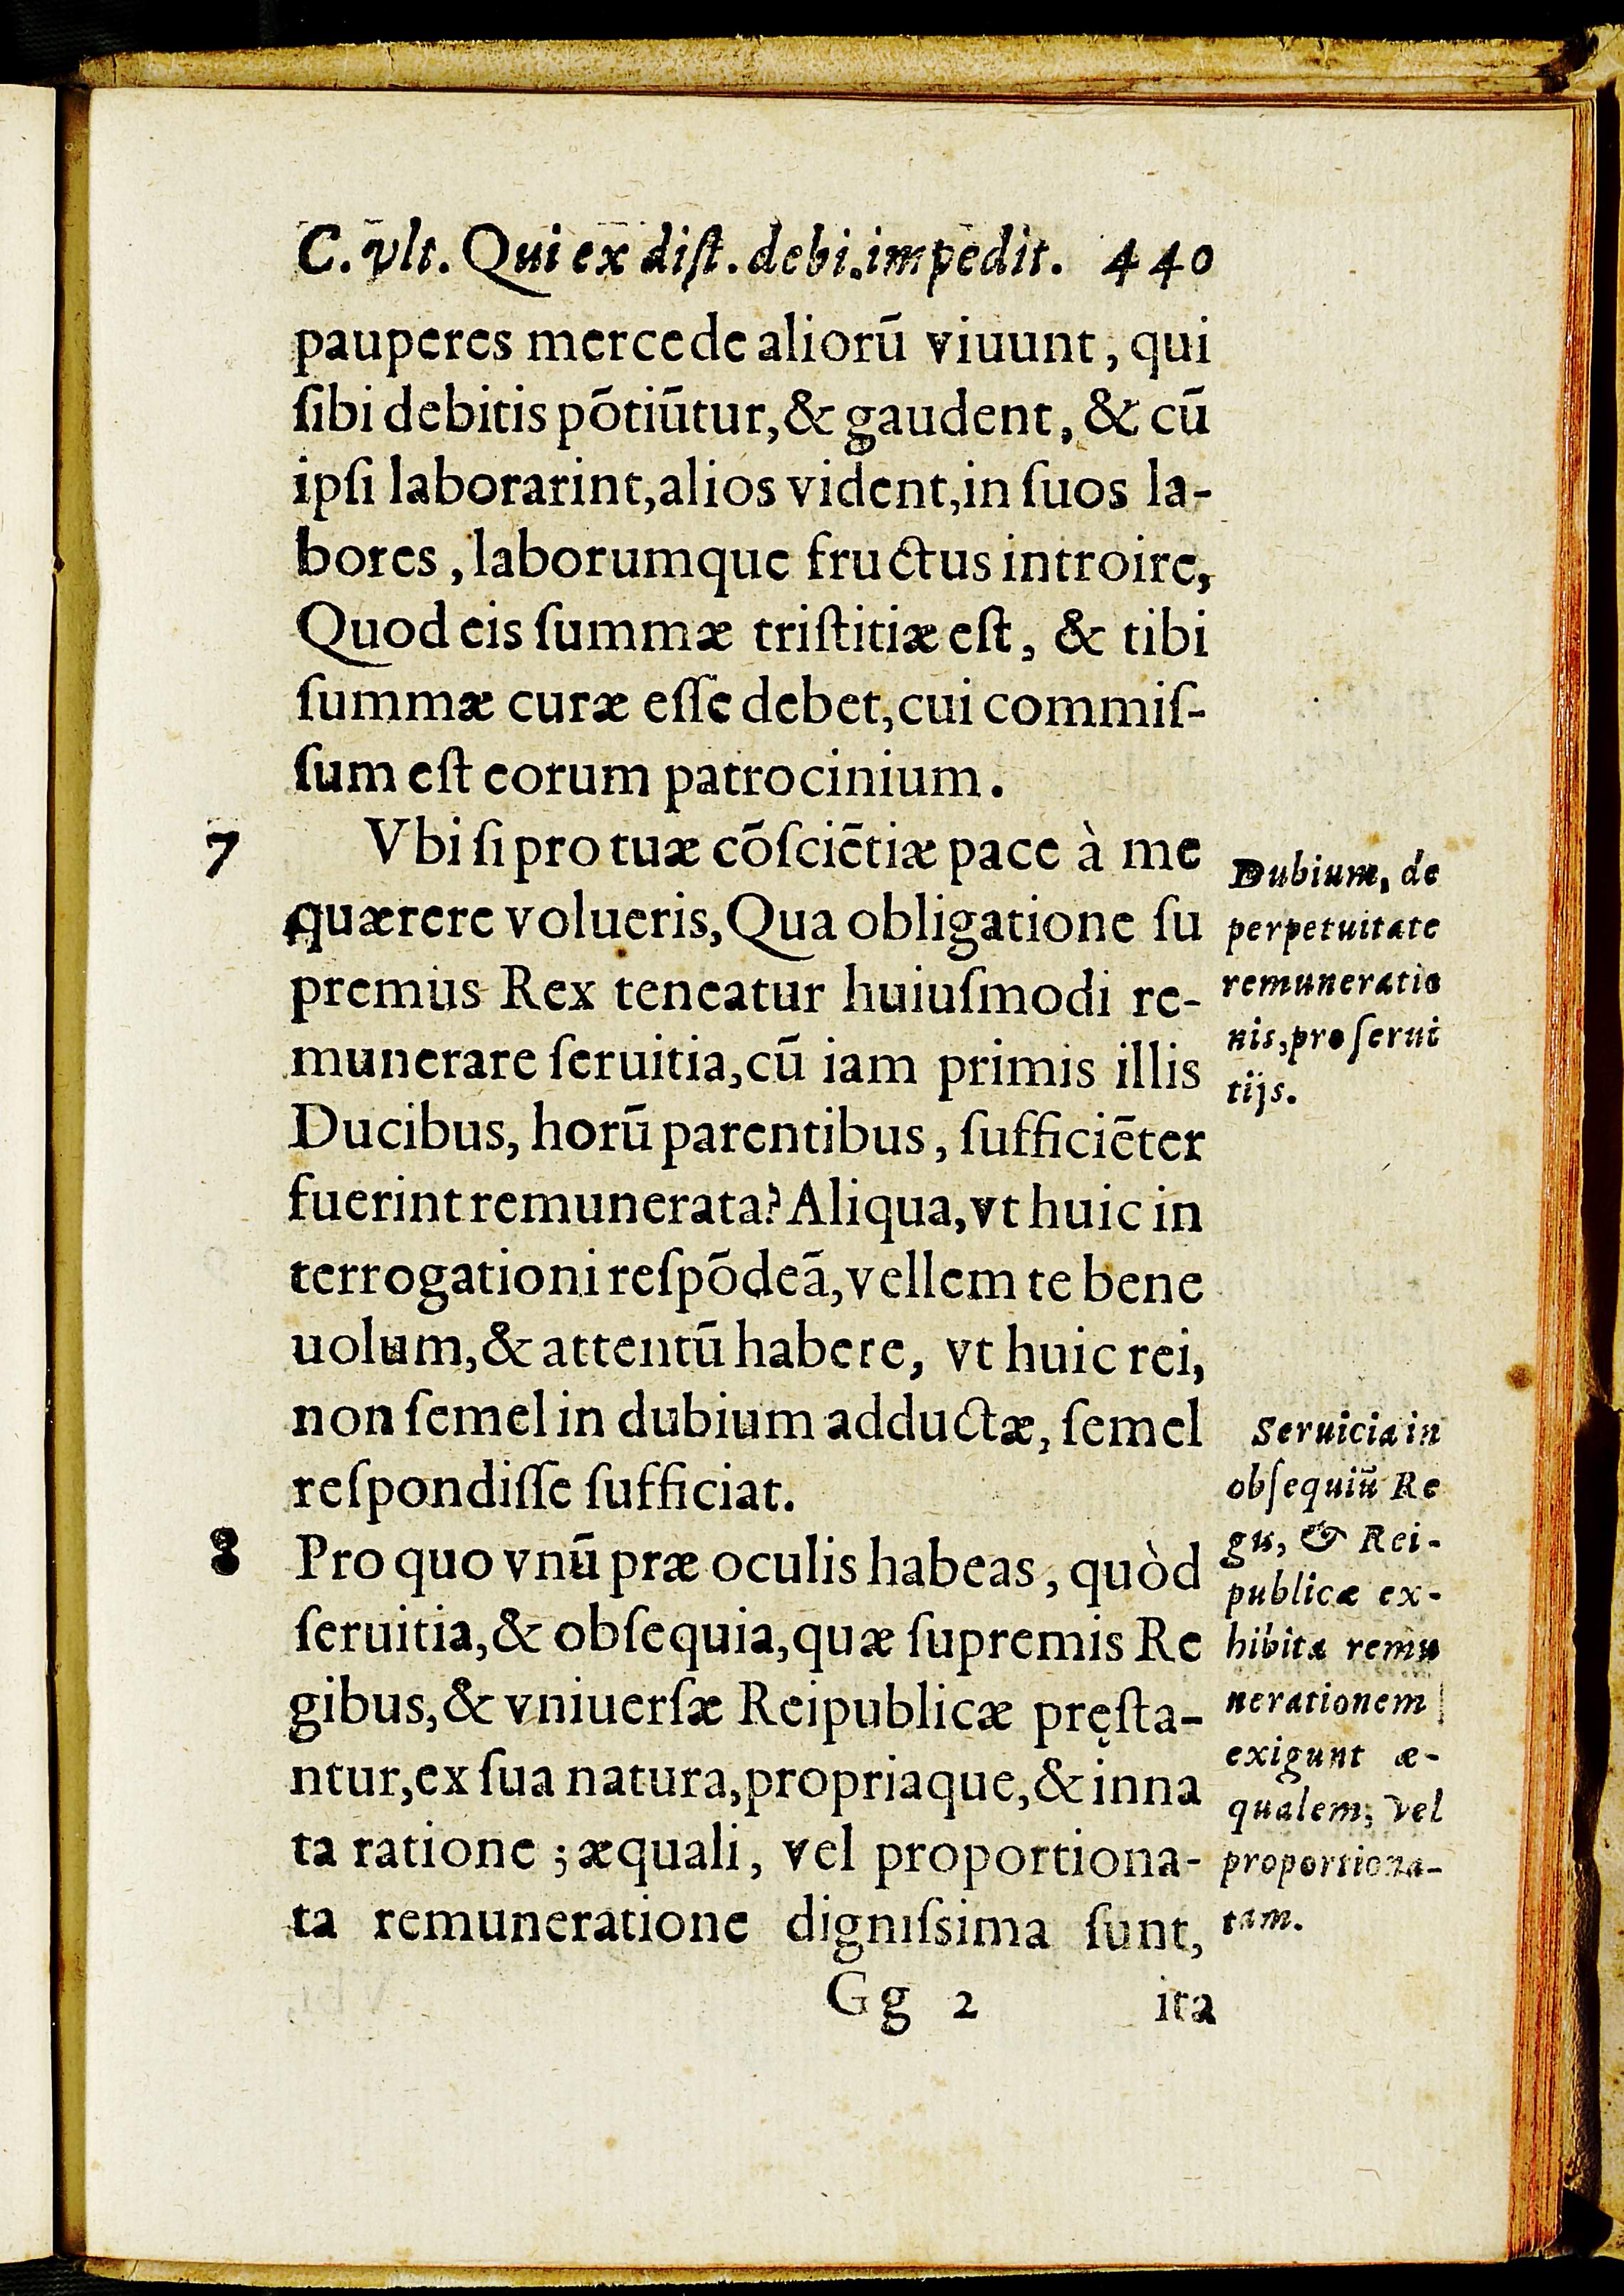 C. vlt. Qui ex diſt. debi. impedit. 440
pauperes mercede aliorū viuunt, qui
ſibi debitis põtiūtur, & gaudent, & cū
ipſi laborarint, alios vident, in ſuos la-
bores, laborumque fructus introire,
Quod eis ſummæ triſtitiæ eſt, & tibi
ſummæ curæ eſſe debet, cui commiſ-
ſum eſt eorum patrocinium.
7 Vbi ſi pro tuæ cõſciẽtiæ pace à me
quærere volueris, Qua obligatione ſu
premus Rex teneatur huiuſmodi re-
munerare ſeruitia, cū iam primis illis
Ducibus, horū parentibus, ſufficiẽter
fuerint remunerata? Aliqua, vt huic in
terrogationi reſpõdeã, vellem te bene
uolum, & attentū habere, vt huic rei,
non ſemel in dubium adductæ, ſemel
reſpondiſſe ſufficiat.
8 Pro quo vnū præ oculis habeas, quòd
ſeruitia, & obſequia, quæ ſupremis Re
gibus, & vniuerſæ Reipublicæ pręſta-
ntur, ex ſua natura, propriaque, & inna
ta ratione ; æquali, vel proportiona-
ta remuneratione digniſsima ſunt,
Gg 2 ita
Dubium, de
perpetuitate
remuneratio
nis, pro ſerui
tijs.
Seruicia in
obſequiū Re
gis, & Rei-
publicæ ex-
hibita remu
nerationem
exigunt æ-
qualem, vel
proportiona-
tam.